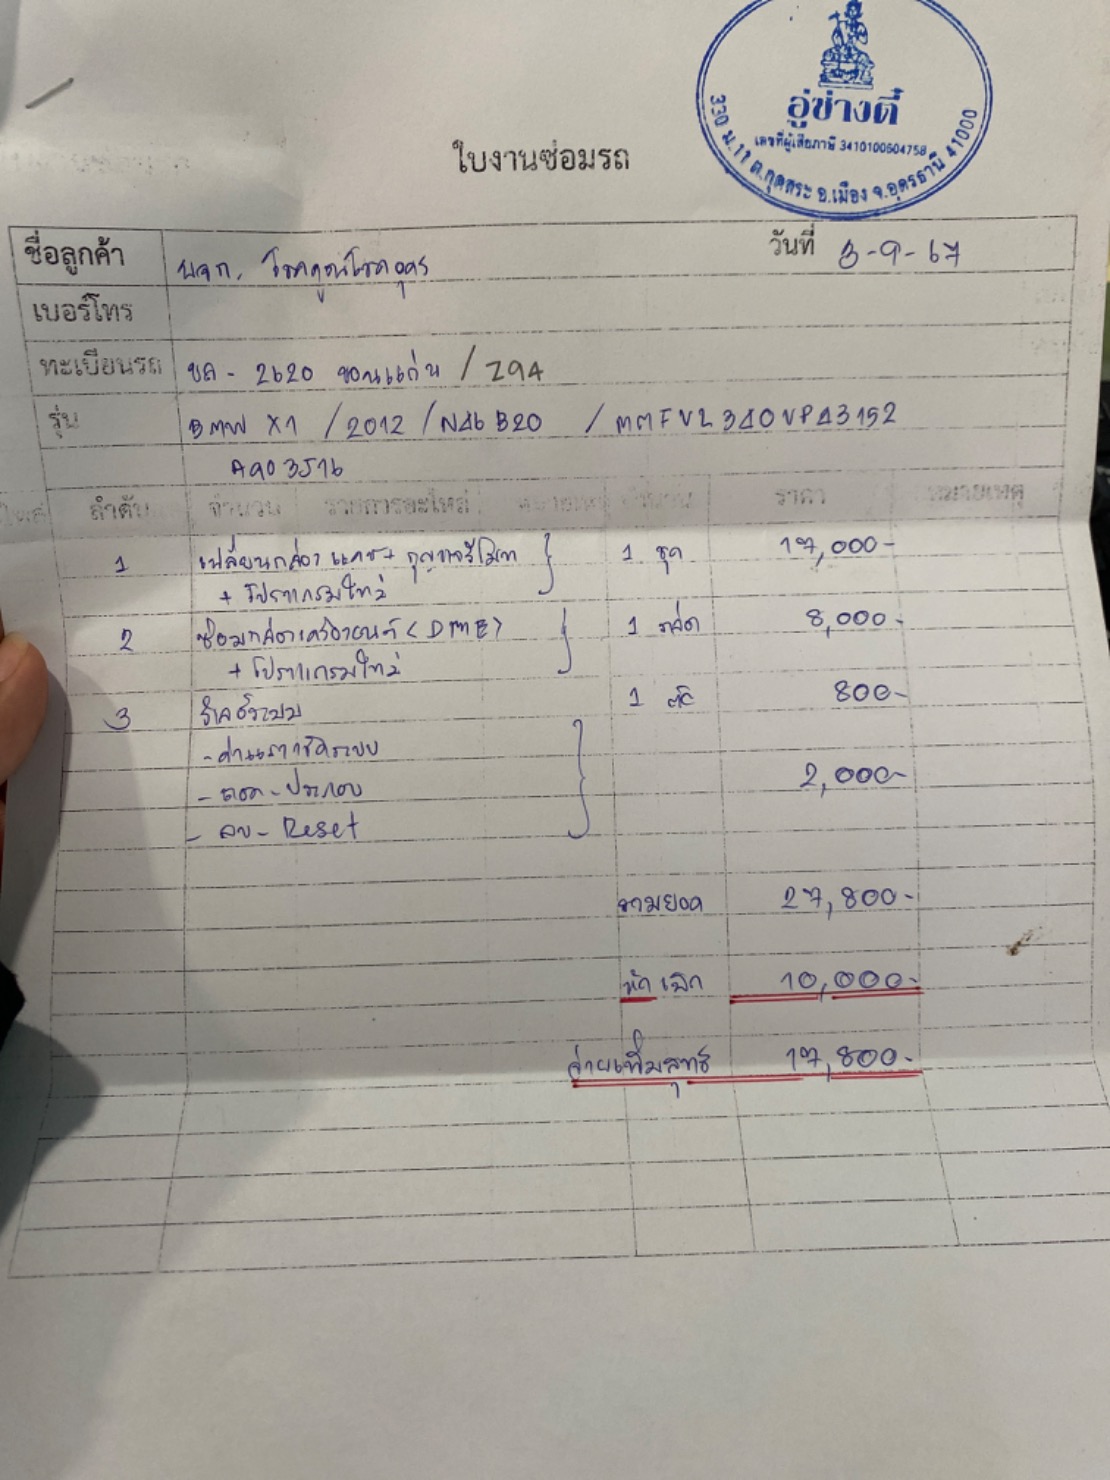 อู่ช่างตี๋
เลขที่ผู้เสียภาษี 3410100504758
330 ม.11 ต.กุดสระ อ.เมือง จ.อุดรธานี 41000
ใบงานซ่อมรถ
ชื่อลูกค้า หจก. โชคคูณโชคอุดร วันที่ 3-9-67
เบอร์โทร
ทะเบียนรถ ขล - 2620 ขอนแก่น / Z9A
รุ่น BMW X1 / 2012 / N46 B20 / MMFVL340VPA3152
A903516
ลำดับ จำนวน รายการอะไหล่ จำนวน ราคา หมายเหตุ
1 เปลี่ยนกล่อง แคช+ กุญแจรีโมท 1 ชุด 17,000-
+ โปรแกรมใหม่
2 ซ่อมกล่องเครื่องยนต์ (DME) 1 กล่อง 8,000-
+ โปรแกรมใหม่
3 รีเลย์ระบบ 1 ตัว 800-
- ค่าแรงเช็คระบบ
- ถอด-ประกอบ 2,000-
- ลบ - Reset
รวมยอด 27,800-
หัก เบิก 10,000-
จ่ายเพิ่มสุทธิ 17,800-